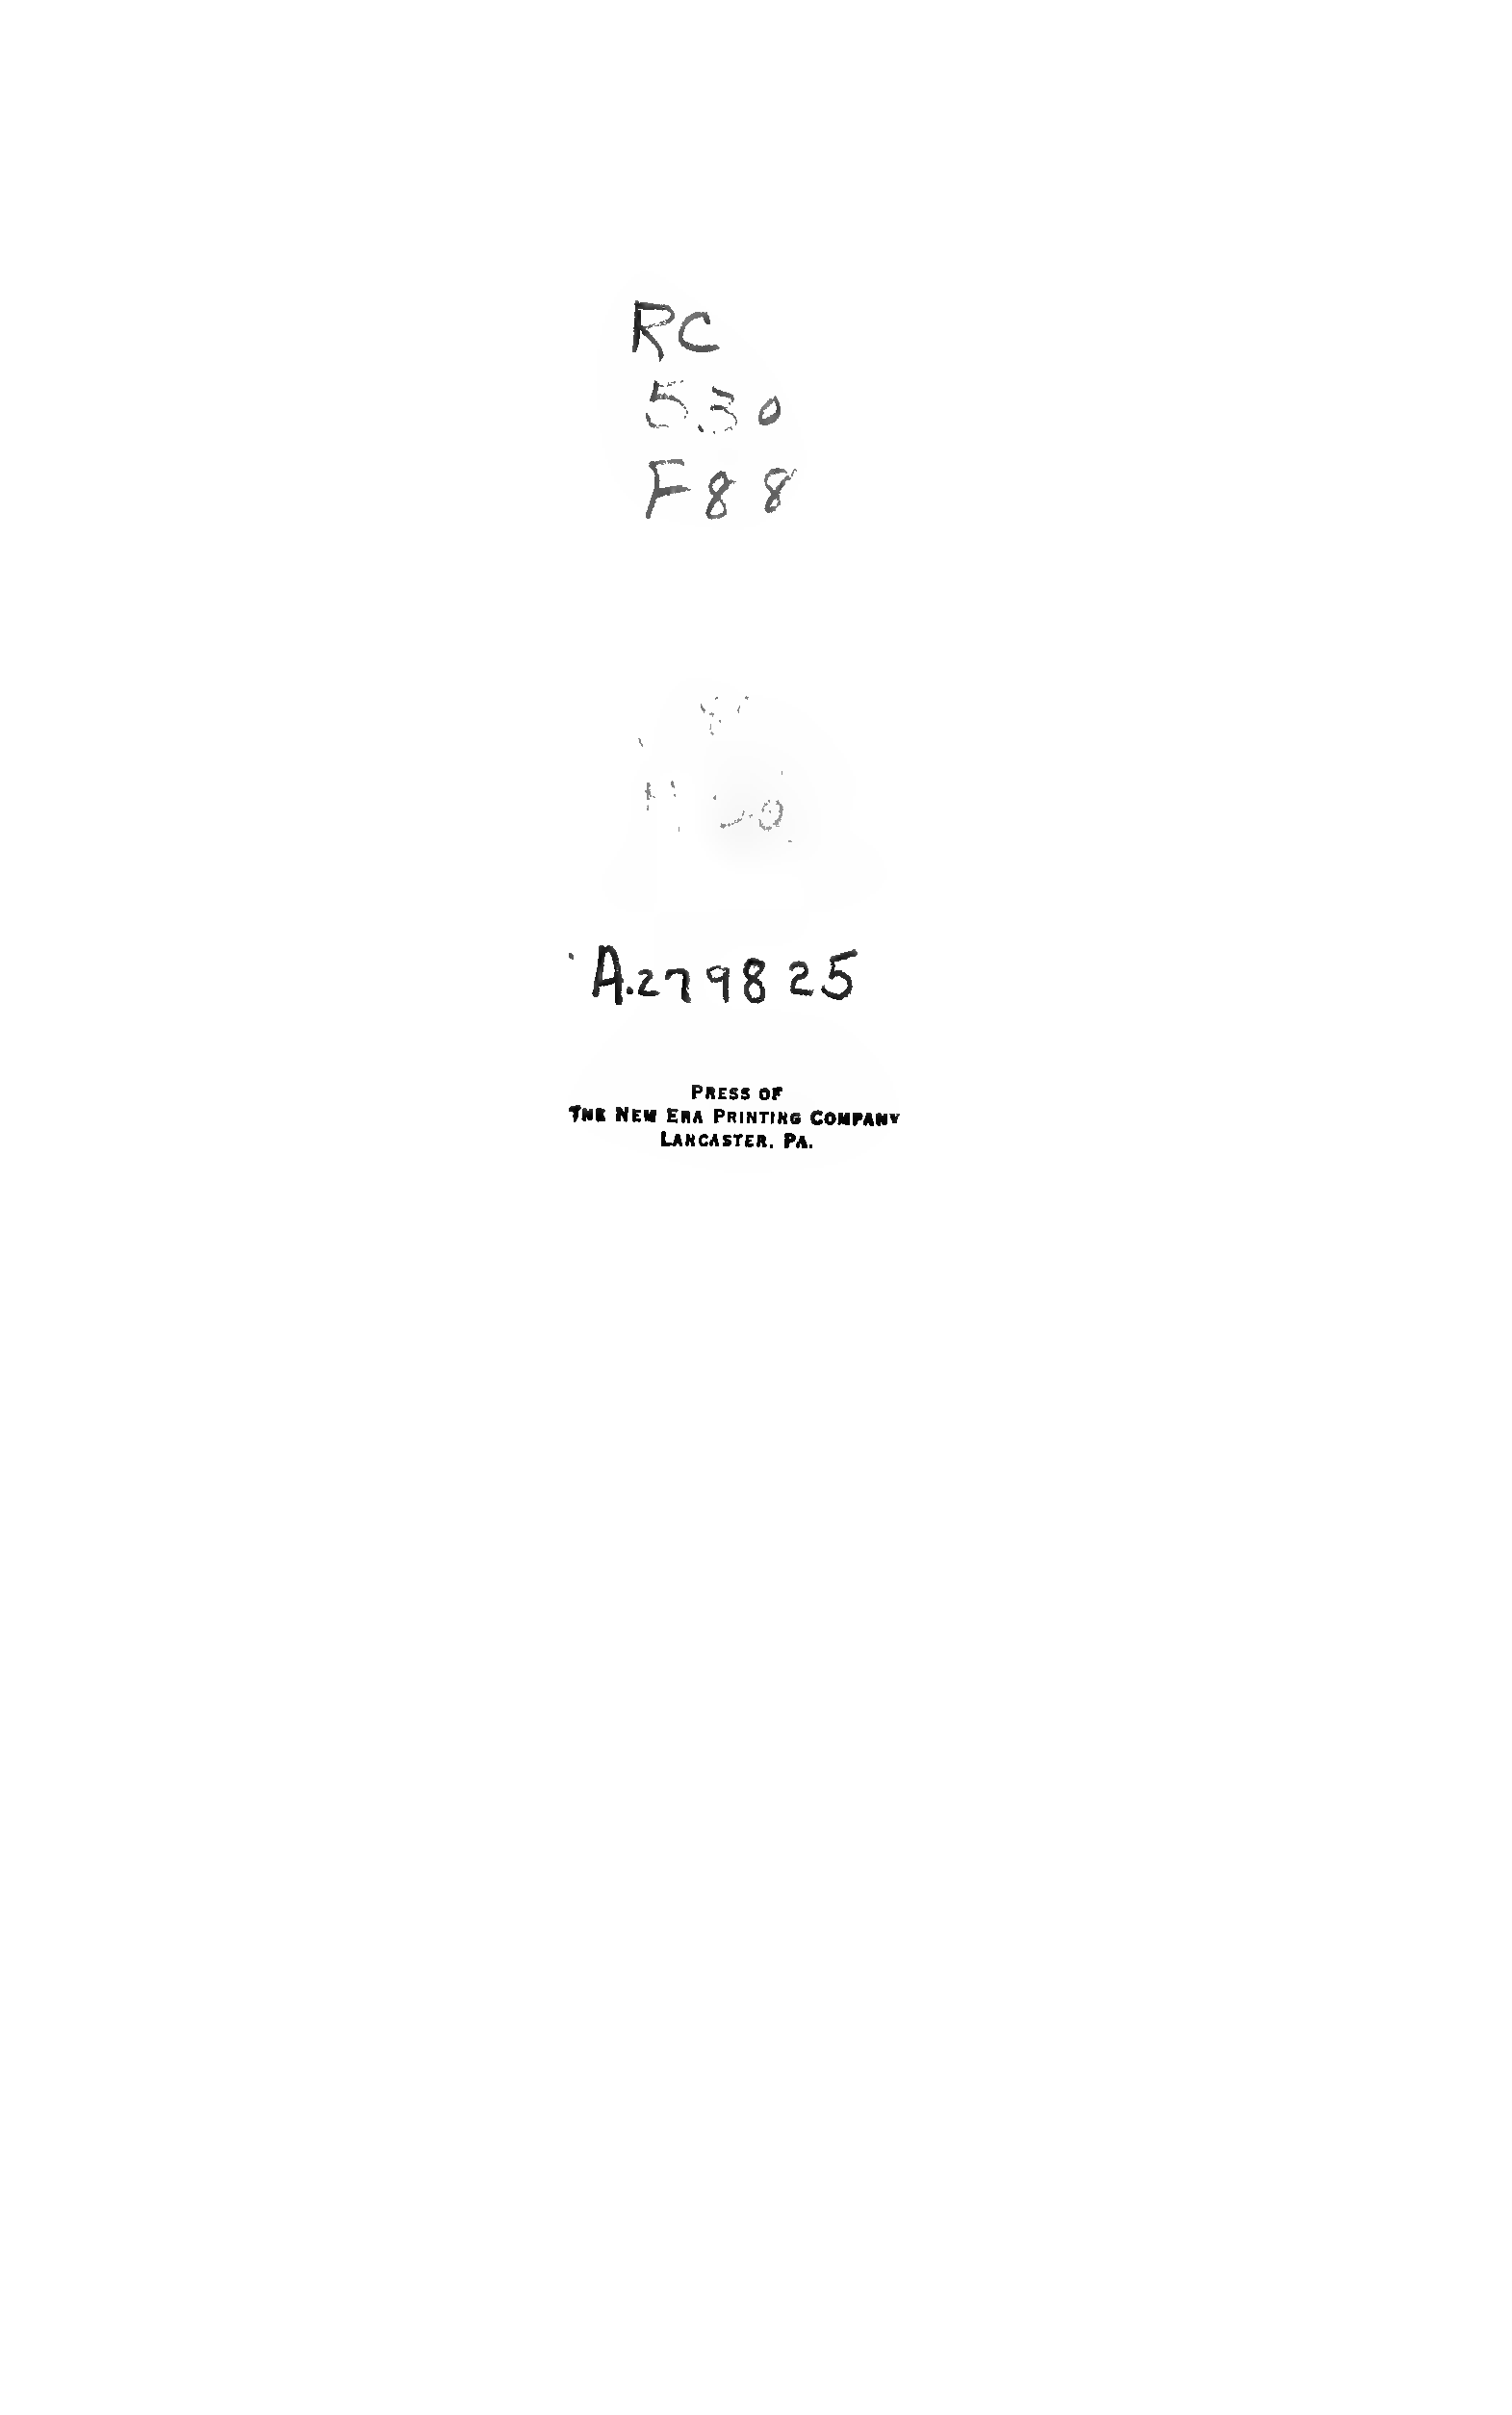 RC
530
F88
A.279825
PRESS OF
THE NEW ERA PRINTING COMPANY
LANCASTER, PA.